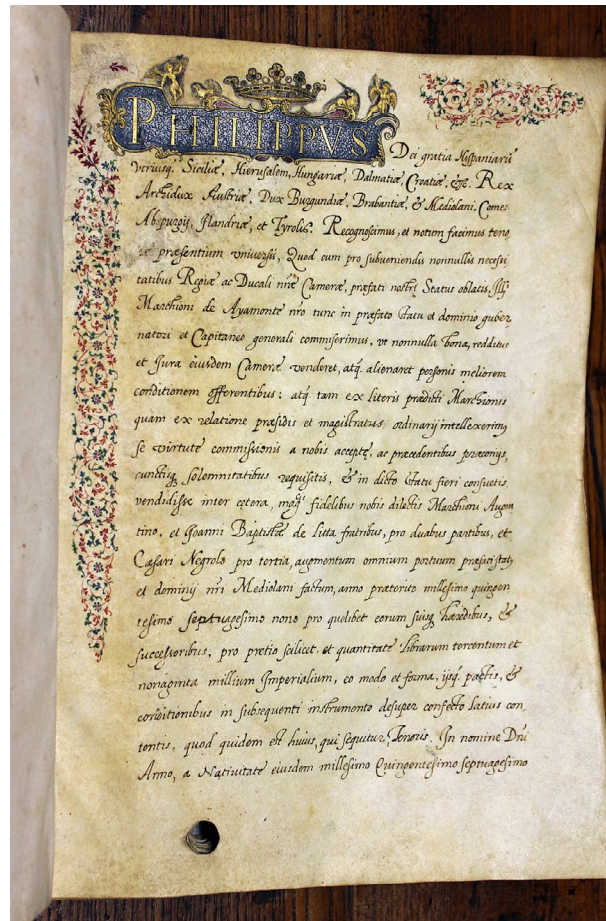 PHILIPPVS
Dei gratia Hispaniarū
vtriusq. Siciliæ, Hierusalem, Hungariæ, Dalmatiæ, Croatiæ, &c. Rex
Archidux Austriæ, Dux Burgundiæ, Brabantiæ, & Mediolani, Comes
Abspurgij, Flandriæ, et Tyrolis. Recognoscimus, et notum facimus teno
præsentium vniuersis, Quod cum pro subueniendis nonnullis necessi
tatibus Regiæ ac Ducali nr̄æ Cameræ, præfati nostri Status oblatis, Ill.
Marchioni de Ayamonte nr̄o tunc in præfato statu et dominio guber
natori et Capitaneo generali commiserimus, vt nonnulla bona, redditus
et Jura eiusdem Cameræ venderet, atq. alienaret personis meliorem
conditionem offerentibus: atq. tam ex literis prædicti Marchionis
quam ex relatione præsidis et magistratus ordinarij intellexerimus
se virtute commissionis a nobis acceptę, ac præcedentibus præconijs,
cunctisq. solemnitatibus requisitis, & in dicto statu fieri consuetis
vendidisse inter cętera, mag.ci fidelibus nobis dilectis Marchioni Augus
tino, et Joanni Baptistæ de Litta fratribus, pro duabus partibus, et
Cæsari Negrolo pro tertia, augmentum omnium portuum præfati stat,
et dominij nr̄i Mediolani factum, anno præterito millesimo quingen
tesimo septuagesimo nono pro quelibet eorum suisq. hæredibus, &
successoribus, pro pretio scilicet, et quantitate librarum tercentum et
nonaginta millium Imperialium, eo modo et forma, ijsq. pactis, &
conditionibus in subsequenti instrumento desuper confecto latius con
tentis, quod quidem est huius, qui sequitur, Tenoris. In nomine Dn̄i
Anno, a Natiuitate eiusdem millesimo Quingentesimo septuagesimo